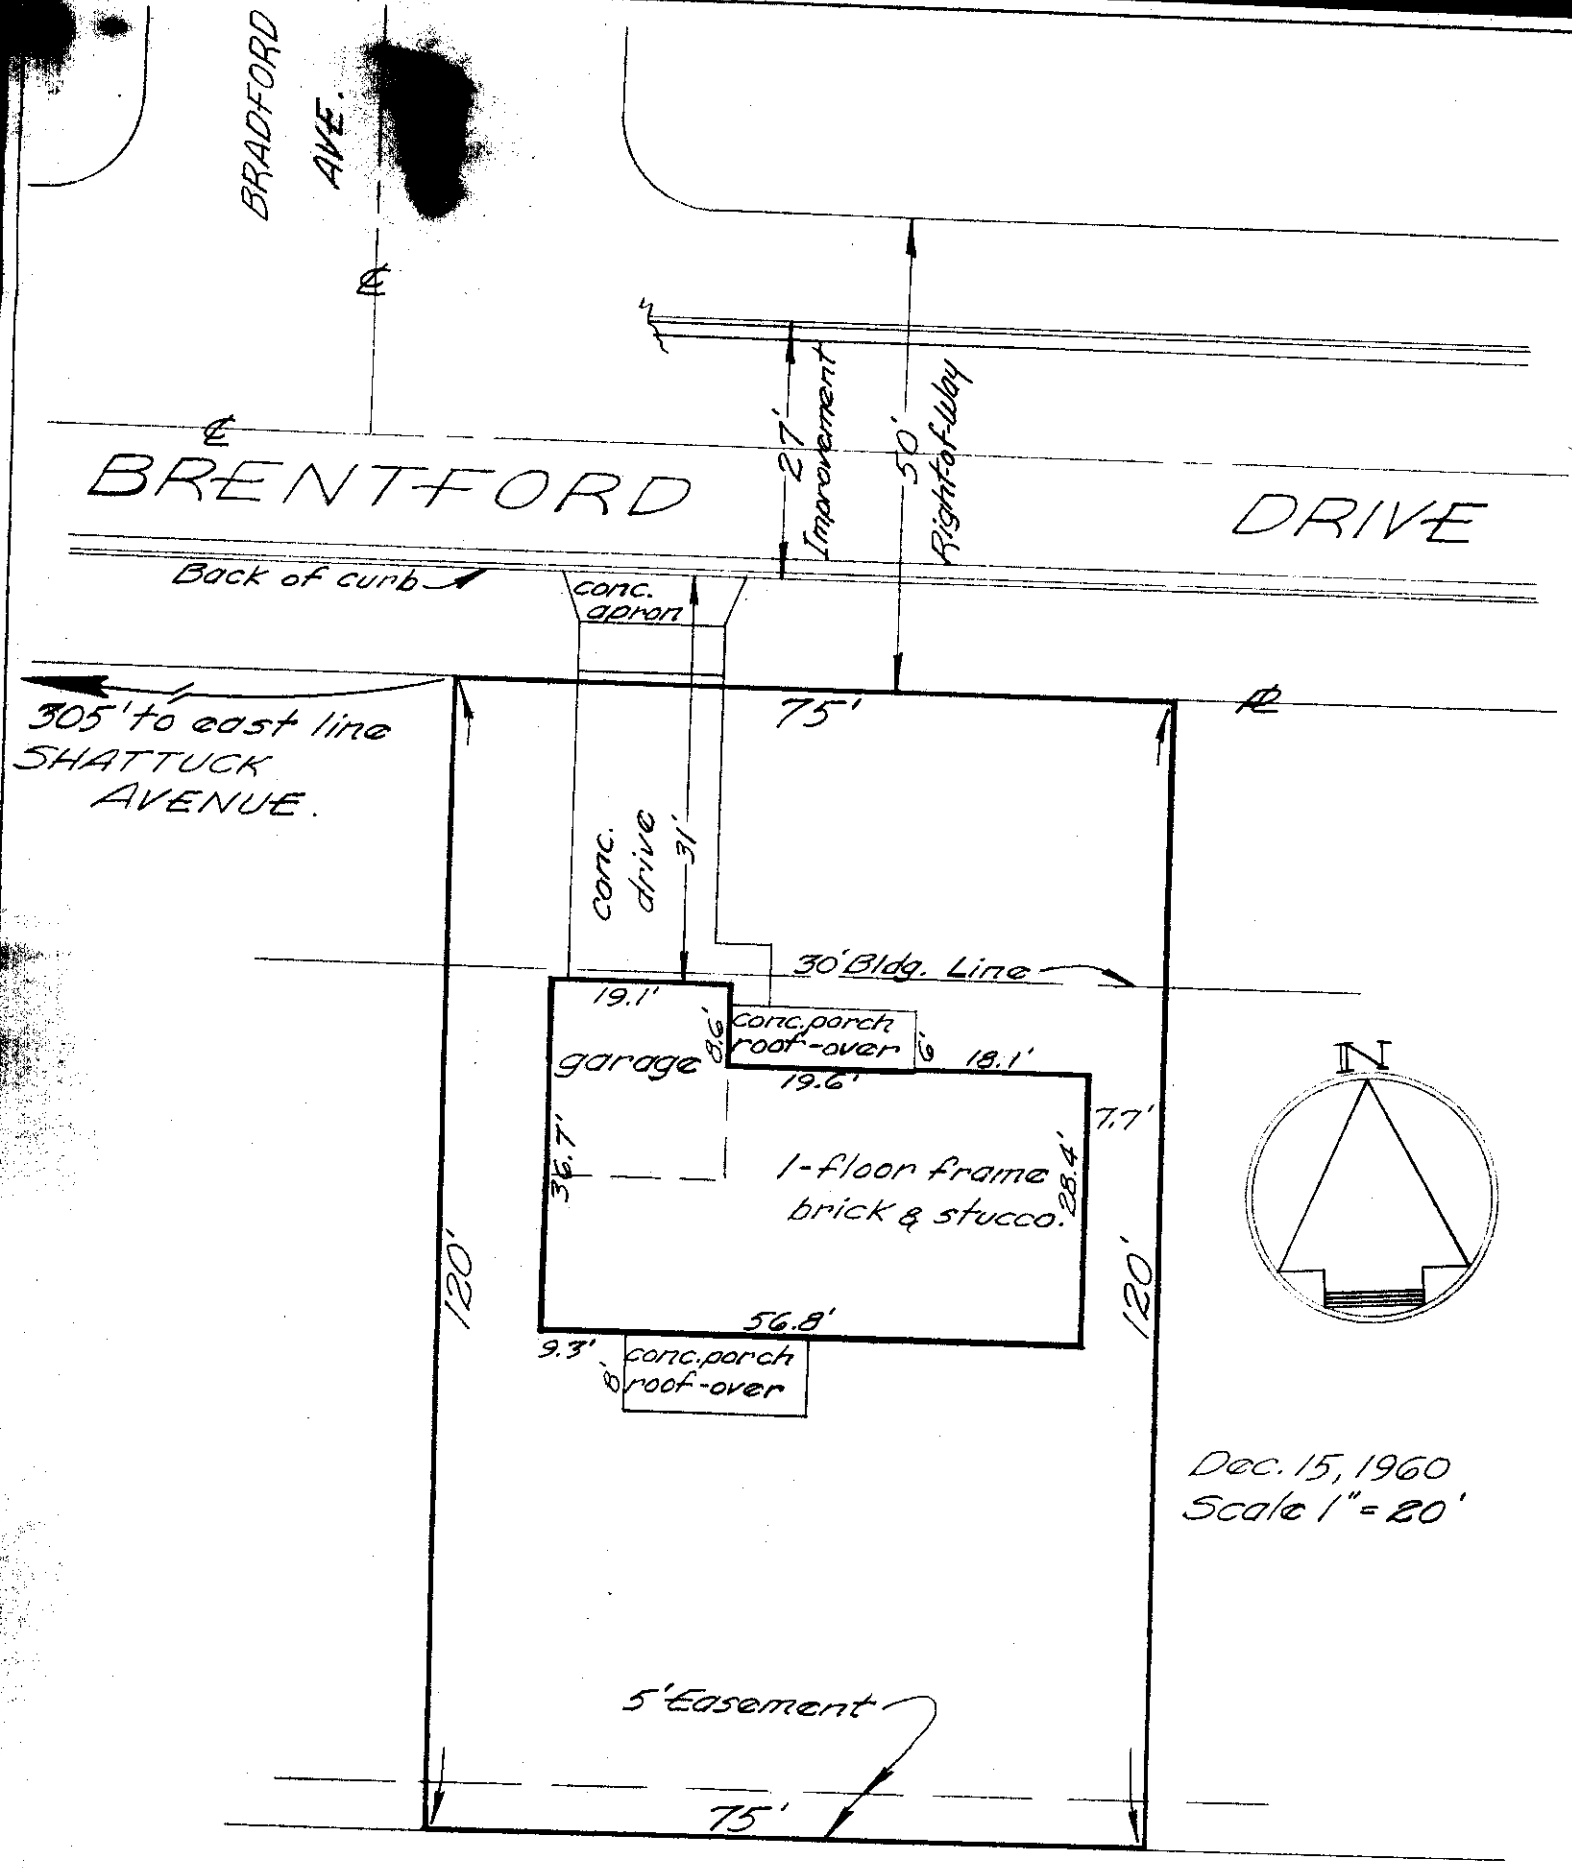 BRADFORD
AVE.
℄
℄
BRENTFORD DRIVE
27'
Improvement
50'
Right-of-Way
Back of curb
conc.
apron
75'
305' to east line
SHATTUCK
AVENUE.
conc.
drive
31'
30' Bldg. Line
19.1'
8.6'
conc. porch
roof-over
6'
garage
19.6'
18.1'
7.7'
36.7'
1-floor frame
brick & stucco.
28.4'
N
120'
120'
56.8'
9.3'
8'
conc. porch
roof-over
Dec. 15, 1960
Scale 1" = 20'
5' Easement
75'